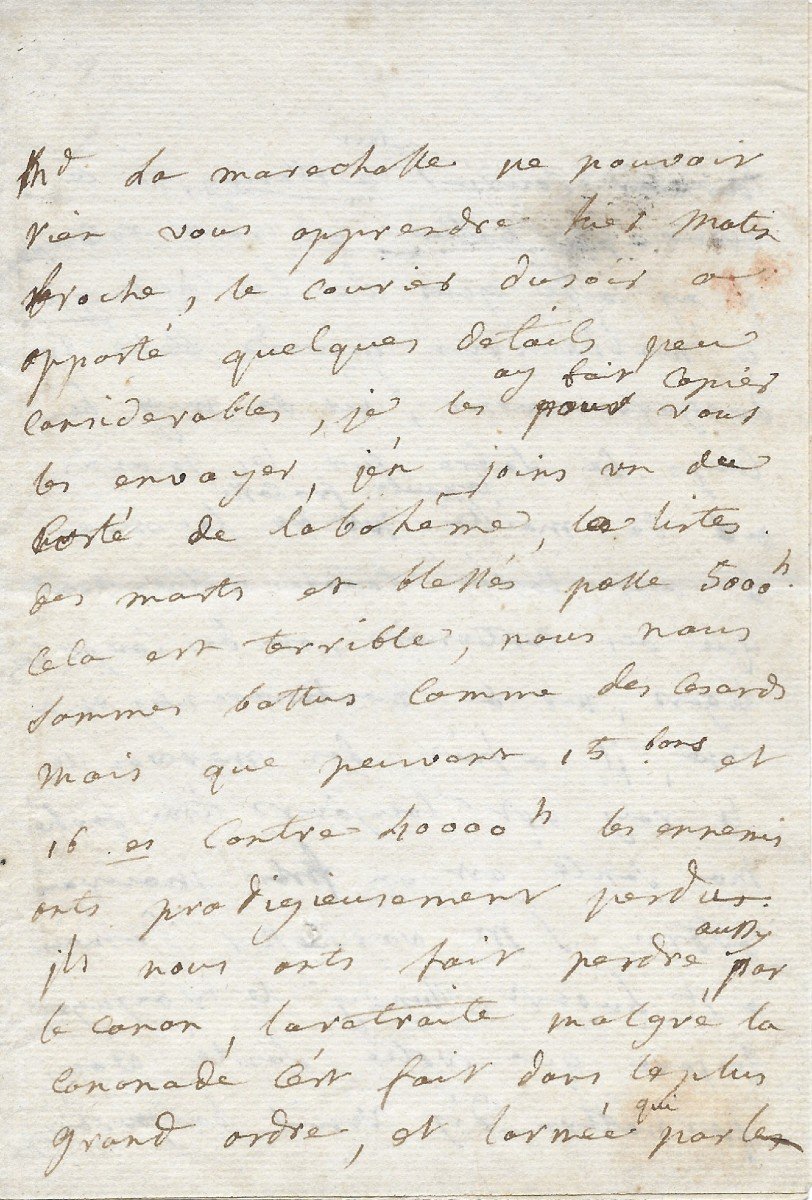 Md La marechalle ne pouvoir
rien vous apprendre hier matin
proche, le courier dusoir a
apporté quelques details peu
ay fait copier
considerables, je les pour vous
les envoyer, j'en joins un du
costé de la bohéme, la listes
des morts et blessés passe 5000h.
cela est terrible, nous nous
sommes battus comme des cesards
mais que peuvent 15 bons et
16 es contre 40000h les ennemis
onts prodigieusement perdus
aussy
jls nous onts fait perdre, par
le canon, la retraite malgré la
cononade c'est fait dans le plus
grand ordre, et l'armée qui parles